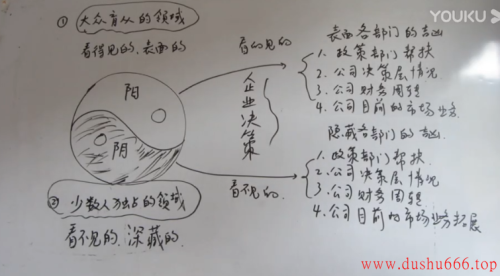 YOUKU
① 大众盲从的领域
看得见的、表面的
阳
阴
② 少数人独占的领域
看不见的、深藏的
企业决策
看的见的
看不见的
表面各部门的吉凶
1. 政策部门帮扶
2. 公司决策层情况
3. 公司财务周转
4. 公司目前的市场业务
隐藏各部门的吉凶
1. 政策部门帮扶
2. 公司决策层情况
3. 公司财务周转
4. 公司目前的市场业务拓展
www.dushu666.top